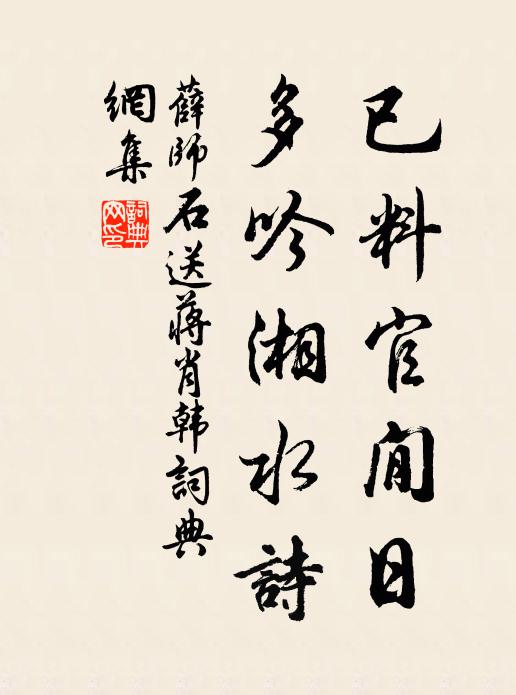 已料官閒日
多吟湘水詩
薛師石送蔣肖韩詞典
網集
詞典網印